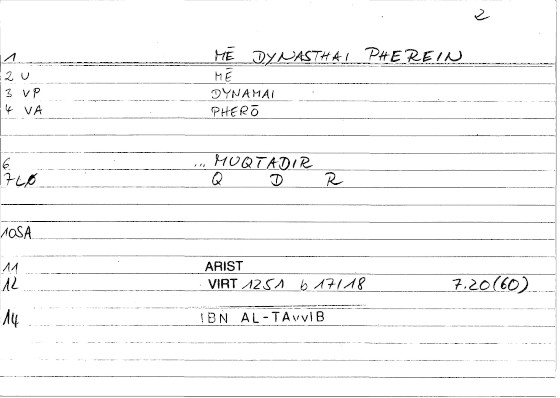 2
1 MĒ DYNASTHAI PHEREIN
2 U MĒ
3 VP DYNAMAI
4 VA PHERŌ
6 ... MUQTADIR
7 Q D R
10SA
11 ARIST
12 VIRT 1251 b 17/18 7.20(60)
14 IBN AL-TAvvIB